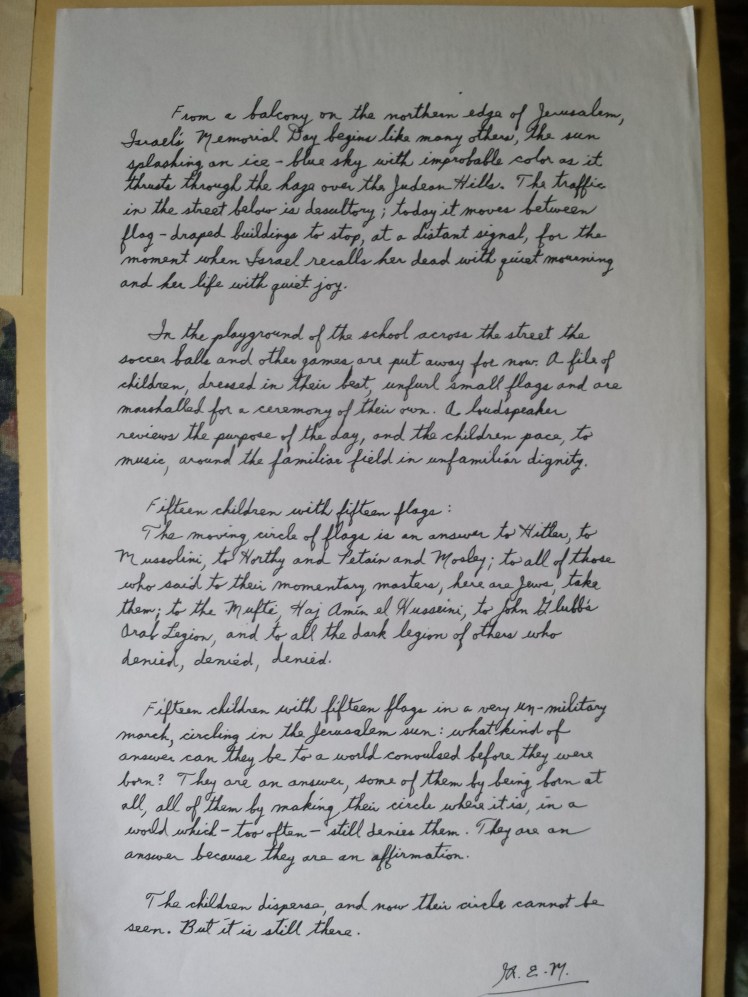 From a balcony on the northern edge of Jerusalem,
Israel's Memorial Day begins like many others, the sun
splashing an ice-blue sky with improbable color as it
thrusts through the haze over the Judean Hills. The traffic
in the street below is desultory; today it moves between
flag-draped buildings to stop, at a distant signal, for the
moment when Israel recalls her dead with quiet mourning
and her life with quiet joy.
In the playground of the school across the street the
soccer balls and other games are put away for now. A file of
children, dressed in their best, unfurl small flags and are
marshalled for a ceremony of their own. A loudspeaker
reviews the purpose of the day, and the children pace, to
music, around the familiar field in unfamiliar dignity.
Fifteen children with fifteen flags:
The moving circle of flags is an answer to Hitler, to
Mussolini, to Horthy and Petain and Mosley; to all of those
who said to their momentary masters, here are Jews, take
them; to the Mufti, Haj Amin el Husseini, to John Glubb's
Arab Legion, and to all the dark legion of others who
denied, denied, denied.
Fifteen children with fifteen flags in a very un-military
march, circling in the Jerusalem sun: what kind of
answer can they be to a world convulsed before they were
born? They are an answer, some of them by being born at
all, all of them by making their circle where it is, in a
world which - too often - still denies them. They are an
answer because they are an affirmation.
The children disperse, and now their circle cannot be
seen. But it is still there.
E. M.